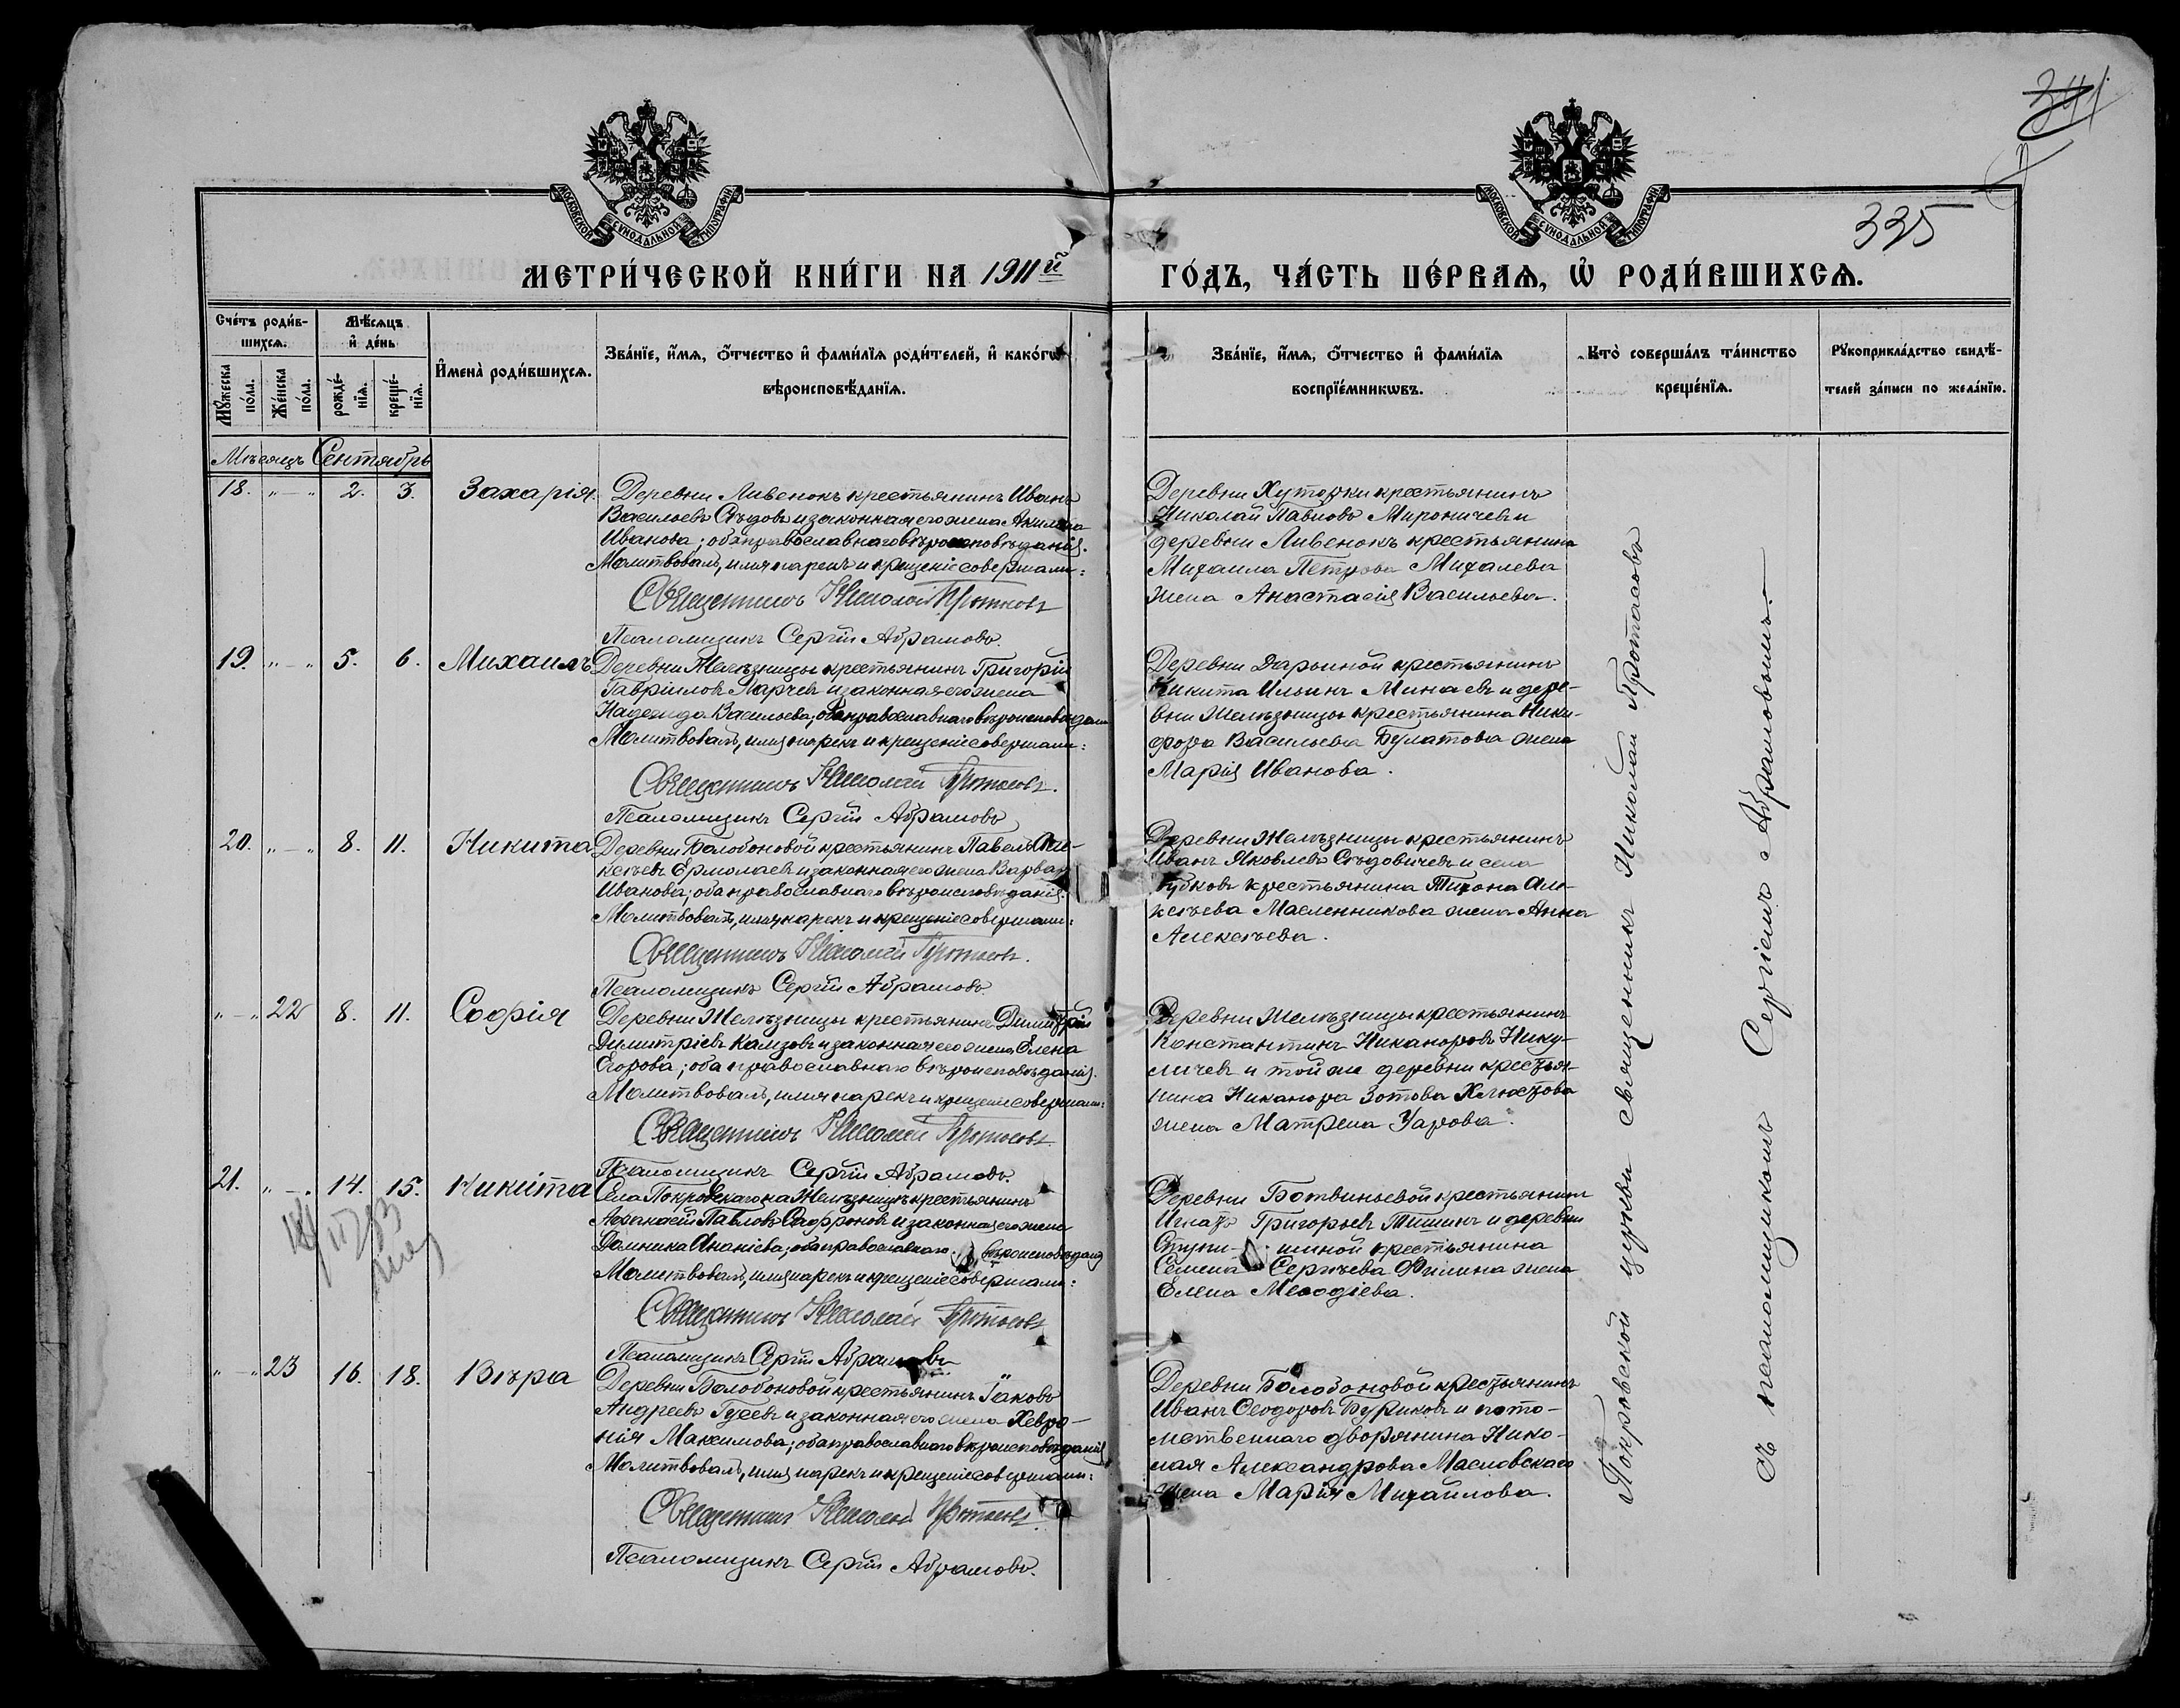 341
335
МОСКОВСКОЙ СѴНОДАЛЬНОЙ ТИПОГРАФІИ
МОСКОВСКОЙ СѴНОДАЛЬНОЙ ТИПОГРАФІИ
МЕТРИ́ЧЕСКОЙ КНИ́ГИ НА 1911й ГО́ДЪ, ЧА́СТЬ ПЕ́РВАѦ, Ѡ҆ РОДИ́ВШИХСѦ.
Сче́тъ роди́в-
шихсѧ.
Мꙋ́жеска по́ла.
Же́нска по́ла.
Мѣ́сѧцъ
и҆ де́нь
рожде́-
нїѧ.
креще́-
нїѧ.
И҆мена̀ роди́вшихсѧ.
Зва́нїе, и҆́мѧ, ѻ҆́тчество и҆ фами́лїѧ роди́телей, и҆ како́гѡ
вѣроисповѣ́данїѧ.
Зва́нїе, и҆́мѧ, ѻ҆́тчество и҆ фами́лїѧ
воспрїе́мникѡвъ.
Кто̀ соверша́лъ та́инство
креще́нїѧ.
Рꙋкоприкла́дство свидѣ́-
телей за́писи по жела́нїю.
Мѣсяцъ Сентябрь
18. „ — „ 2. 3. Захарія.
Деревни Ливенокъ крестьянинъ Иванъ
Васильевъ Сѣдовъ и законная его жена Акилина
Иванова; оба православнаго вѣроисповѣданія.
Молитвовалъ, имя нарекъ и крещеніе совершали:
Священникъ Николай Протасовъ
Псаломщикъ Сергій Абрамовъ.
Деревни Хуторки крестьянинъ
Николай Павловъ Мироничевъ и
деревни Ливенокъ крестьянина
Михаила Петрова Михалева
жена Анастасія Васильева.
19. „ — „ 5. 6. Михаилъ
Деревни Желѣзницы крестьянинъ Григорій
Гавріиловъ Марчевъ и законная его жена
Надежда Васильева; оба православнаго вѣроисповѣдан
Молитвовалъ, имя нарекъ и крещеніе совершали:
Священникъ Николай Протасовъ.
Псаломщикъ Сергій Абрамовъ
Деревни Дарьиной крестьянинъ
Никита Ильинъ Минаевъ и дере-
вни Желѣзницы крестьянина Ники-
фора Васильева Булатова жена
Марія Иванова.
20. „ — „ 8. 11. Никита
Деревни Болобоновой крестьянинъ Павелъ Але-
ксѣевъ Ермолаевъ и законная его жена Варвара
Иванова; оба православнаго вѣроисповѣданія.
Молитвовалъ, имя нарекъ и крещеніе совершали:
Священникъ Николай Протасовъ.
Псаломщикъ Сергій Абрамовъ.
Деревни Желѣзницы крестьянинъ
Иванъ Яковлевъ Сѣдовичевъ и села
крестьянина Тихона Але-
ксѣева Масленникова жена Анна
Алексѣева.
„ — „ 22 8. 11. Софія
Деревни Желѣзницы крестьянинъ Димитрій
Димитріевъ Камзовъ и законная его жена Елена
Егорова; оба православнаго вѣроисповѣданія.
Молитвовалъ, имя нарекъ и крещеніе совершали:
Священникъ Николай Протасовъ
Псаломщикъ Сергій Абрамовъ.
Деревни Желѣзницы крестьянинъ
Константинъ Никаноровъ Нику-
личевъ и той же деревни крестья-
нина Никанора Зотова Хлюстова
жена Матрена Уарова.
21. „ — „ 14. 15. Никита
Села Покровскаго на Желѣзницѣ крестьянинъ
Аѳанасій Павловъ Сафроновъ и законная его жена
Домника Ананіева; оба православнаго вѣроисповѣдані
Молитвовалъ, имя нарекъ и крещеніе совершали:
Священникъ Николай Протасовъ
Псаломщикъ Сергій Абрамовъ
Деревни Ботвиньевой крестьянинъ
Игнатъ Григорьевъ Тишинъ и деревни
Ступи- шиной крестьянина
Семена Сергѣева Филина жена
Елена Меѳодіева.
„ — „ 23 16. 18. Вѣра
Деревни Болобоновой крестьянинъ Іаковъ
Андреевъ Гусевъ и законная его жена Хевро-
нія Максимова; оба православнаго вѣроисповѣданія
Молитвовалъ, имя нарекъ и крещеніе совершали:
Священникъ Николай Протасовъ.
Псаломщикъ Сергій Абрамовъ.
Деревни Болобоновой крестьянинъ
Иванъ Ѳеодоровъ Буриковъ и пото-
мственнаго дворянина Нико-
лая Александрова Масловскаго
жена Марія Михайлова.
Покровской церкви священникъ Николай Протасовъ
съ псаломщикомъ Сергіемъ Абрамовымъ.